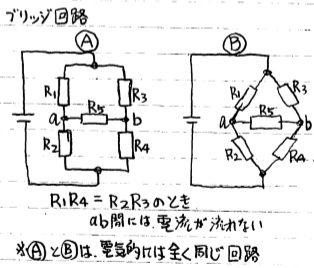 ブリッジ回路
Ⓐ Ⓑ
R1 R3 R1 R3
a R5 b a R5 b
R2 R4 R2 R4
R1R4 = R2R3のとき
ab間には、電流が流れない
※ⒶとⒷは、電気的には全く同じ回路